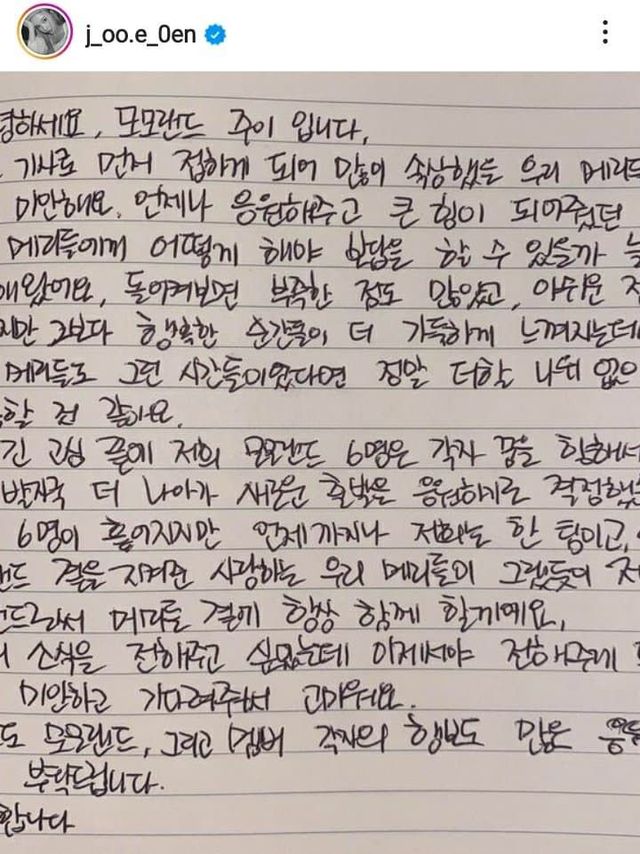 j_oo.e_0en
녕하세요, 모모랜드 주이 입니다.
기사로 먼저 접하게 되어 많이 속상했을 우리 메리들
미안해요. 언제나 응원해주고 큰 힘이 되어줬던
메리들에게 어떻게 해야 보답을 할 수 있을까 늘
해왔어요, 돌이켜보면 부족한 점도 많았고, 아쉬운 점
지만 그보다 행복한 순간들이 더 가득하게 느껴지는데
메리들도 그런 시간들이었다면 정말 더할 나위 없이
할 것 같아요.
긴 고심 끝에 저희 모모랜드 6명은 각자 꿈을 향해서
발자국 더 나아가 새로운 출발을 응원하기로 결정했
6명이 흩어지지만 언제까지나 저희는 한 팀이고,
랜드 곁을 지켜준 사랑하는 우리 메리들이 그랬듯이 저
랜드로서 메리들 곁에 항상 함께 할게요.
소식을 전해주고 싶었는데 이제서야 전해주게
미안하고 기다려줘서 고마워요.
도 모모랜드, 그리고 멤버 각자의 행보도 많은 응원
부탁드립니다.
합니다